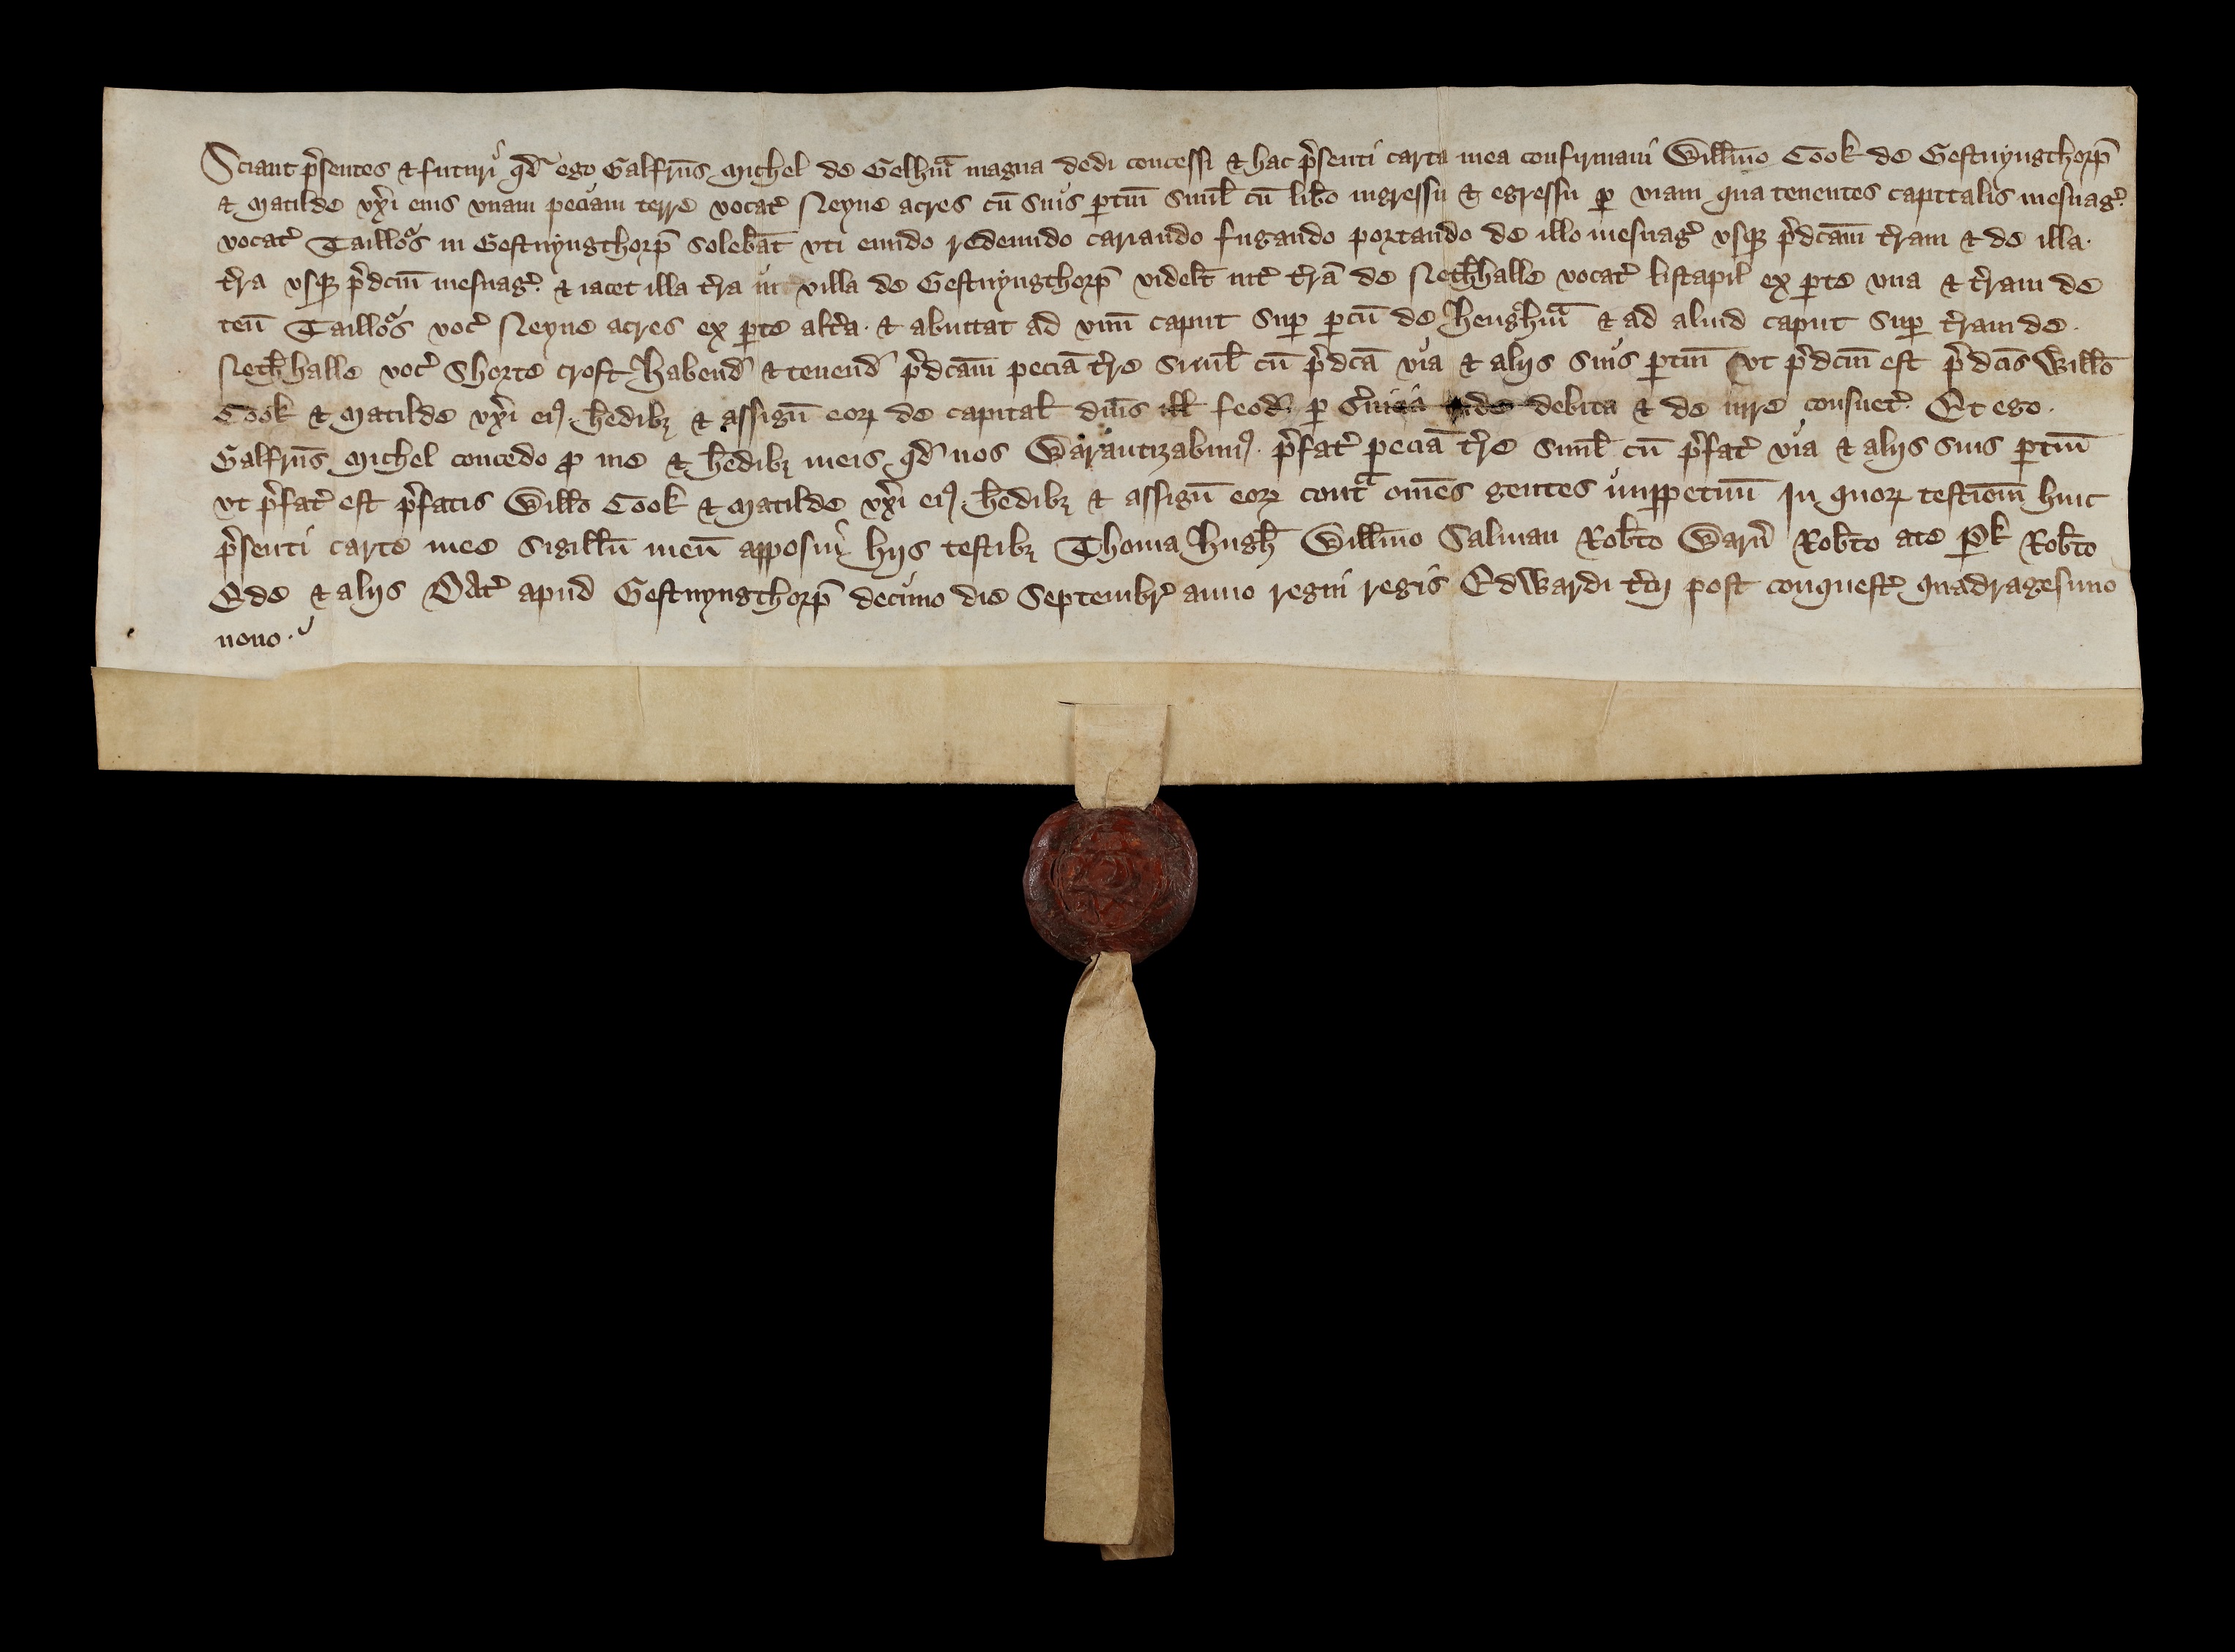 Sciant p̄sentes & futuri qd̄ ego Galfrūs Michel de Gelhm̄ magna dedi concessi & hac p̄senti carta mea confirmavi Willm̄o Cook de Gestnyngthorp̄
& Matilde vx̄i eius vnam peciam terre vocat̄ Neyne acres cū suis ptin̄ simul̄ cū lib̄o ingressu & egressu p viam qua tenentes capitalis mesuaḡ
vocat̄ Taillōs in Gestnyngthorp̄ solebāt vti eundo redeundo cariando fugando portando de illo mesuaḡ vsqȝ p̄dcām t̄ram & de illa
t̄ra vsqȝ p̄dcm̄ mesuaḡ & iacet illa t̄ra in villa de Gestnyngthorp̄ videlt̄ int̄ t̄rā de Neth̄halle vocat̄ listapil ex pte vna & t̄ram de
ten̄ Taillōs voc̄ Neyne acres ex pte alt̄a & abuttat ad vnū caput sup pcū de Henghm̄ & ad aliud caput sup t̄ram de
Neth̄halle voc̄ Shorte croft Habend̄ & tenend̄ p̄dcām peciā t̄re simul̄ cū p̄dcā via & aliis suis ptin̄ vt p̄dcm̄ est p̄dcīs Willō
Cook & Matilde vx̄i eiꝰ h̄edibȝ & assign̄ eorꝝ de capital̄ dn̄is ill̄ feod̄ p s̄uicia inde debita & de iure consuet̄ Et ego
Galfrūs Michel concedo ꝓ me & h̄edibȝ meis qd̄ nos Warantizabimꝰ p̄fat̄ peciā t̄re simul̄ cū p̄fat̄ via & aliis suis ptin̄
vt p̄fat̄ est p̄fatis Willō Cook & Matilde vx̄i eiꝰ h̄edibȝ & assign̄ eorꝝ cont̄ om̄es gentes inppetuū In quorꝝ testiom̄ huic
p̄senti carte mee sigillū meū apposui hijs testibȝ Thoma Hugh̄ Willm̄o Salman Rob̄to Warn̄ Rob̄to ate Pk Rob̄to
Ede & aliis Dat̄ apud Gestnyngthorp̄ decimo die Septembr̄ anno regni regis Edwardi t̄cij post conquest̄ quadragesimo
nono